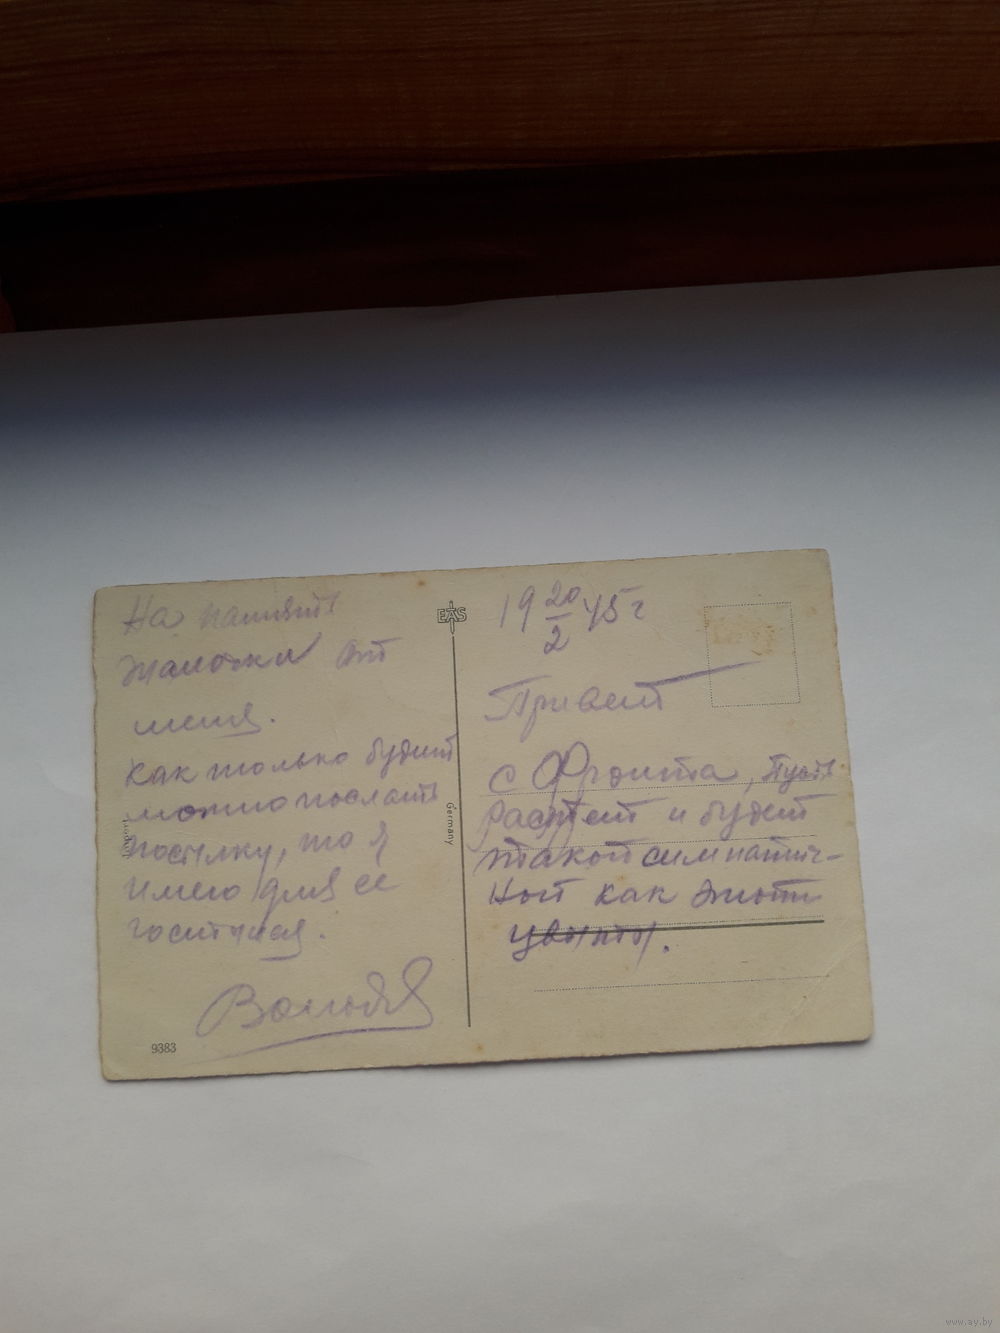 На память
Жаночки от
меня.
Как только будит
можно послать
посылку, то я
имею для её
гостинея.
Володя
9383
EAS
Germany
19 20/2 45г
Привет
с Фронта, Пусть
растет и будит
такой симпатич-
ной как эноти
цвыты.
www.ay.by